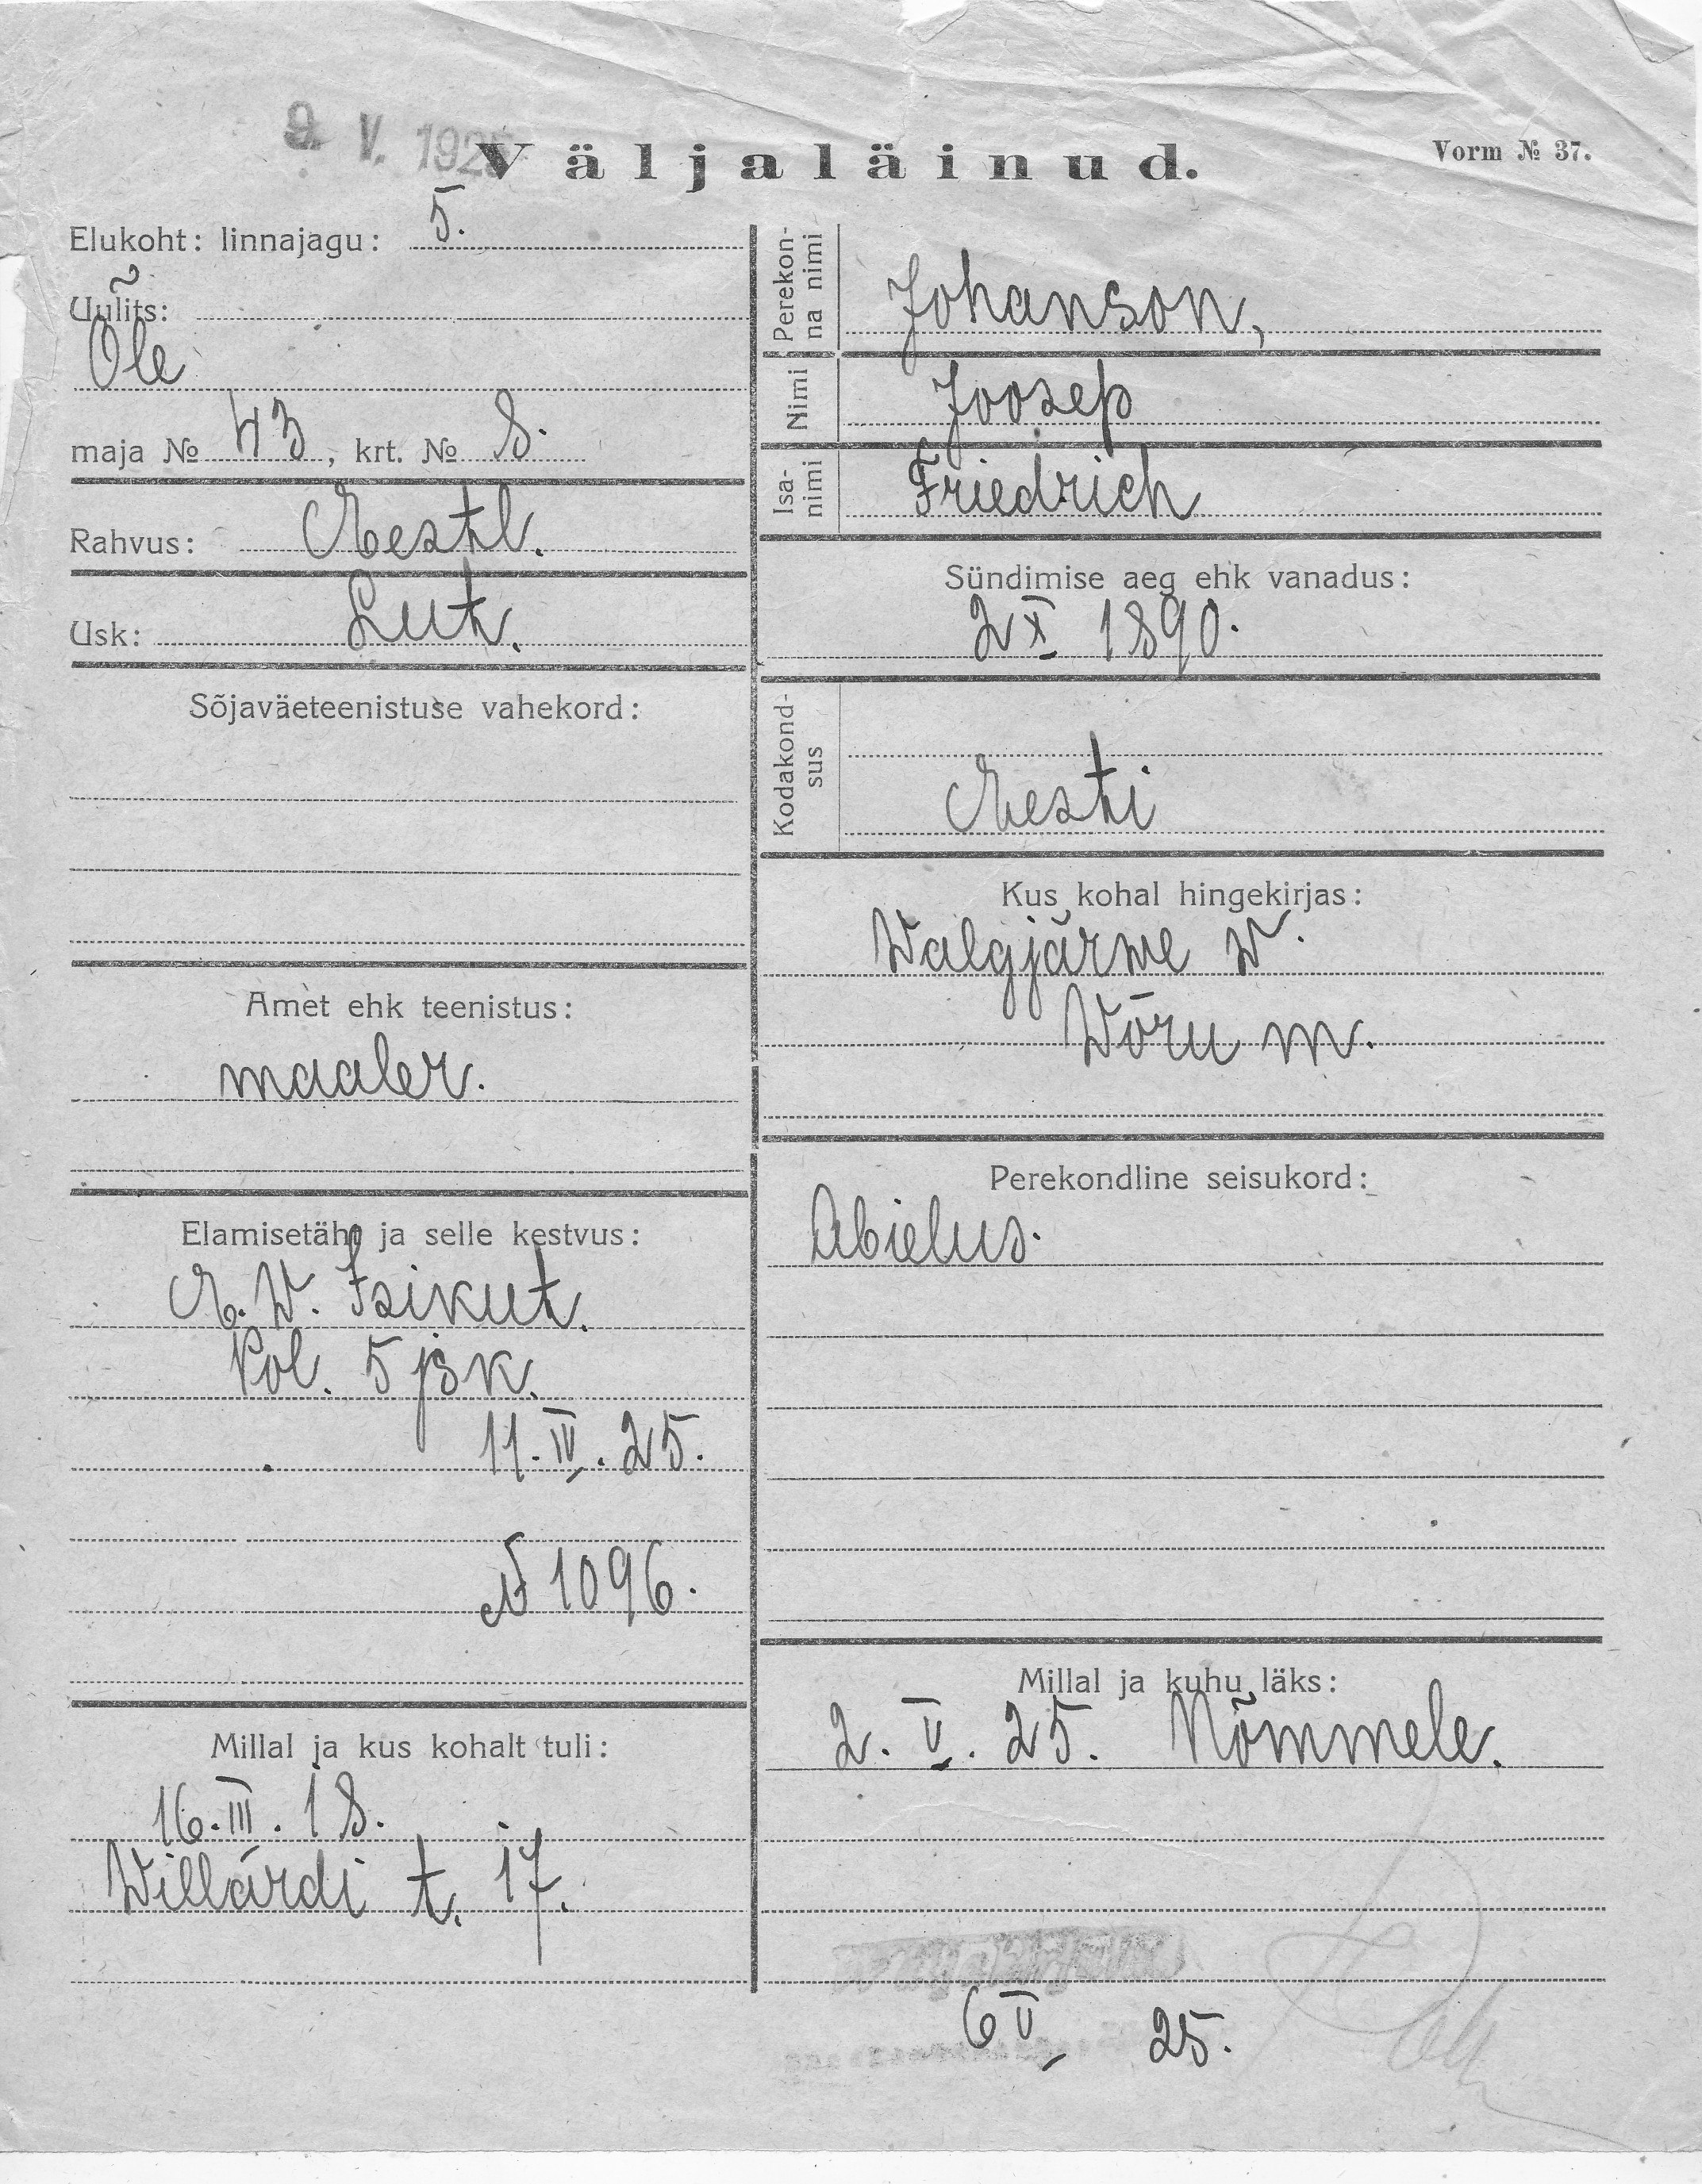 9. V. 1925
Väljaläinud.
Vorm № 37.
Elukoht: linnajagu: 5.
Uulits:
Õle
maja № 43, krt. № 8.
Rahvus: Eestl.
Usk: Lut.
Sõjaväeteenistuse vahekord:
Amet ehk teenistus:
maaler.
Elamisetäht ja selle kestvus:
E. W. Isikut.
Pol. 5 jsk.
11. IV. 25.
№ 1096.
Millal ja kus kohalt tuli:
16. III. 18.
Willardi t. 17.
Perekon-
na nimi
Johanson,
Nimi
Joosep
Isa-
nimi
Friedrich
Sündimise aeg ehk vanadus:
2 X 1890.
Kodakond-
sus
Eesti
Kus kohal hingekirjas:
Walgjärwe w.
Wõru m.
Perekondline seisukord:
Abielus.
Millal ja kuhu läks:
2. V. 25. Nõmmele.
6 V 25.